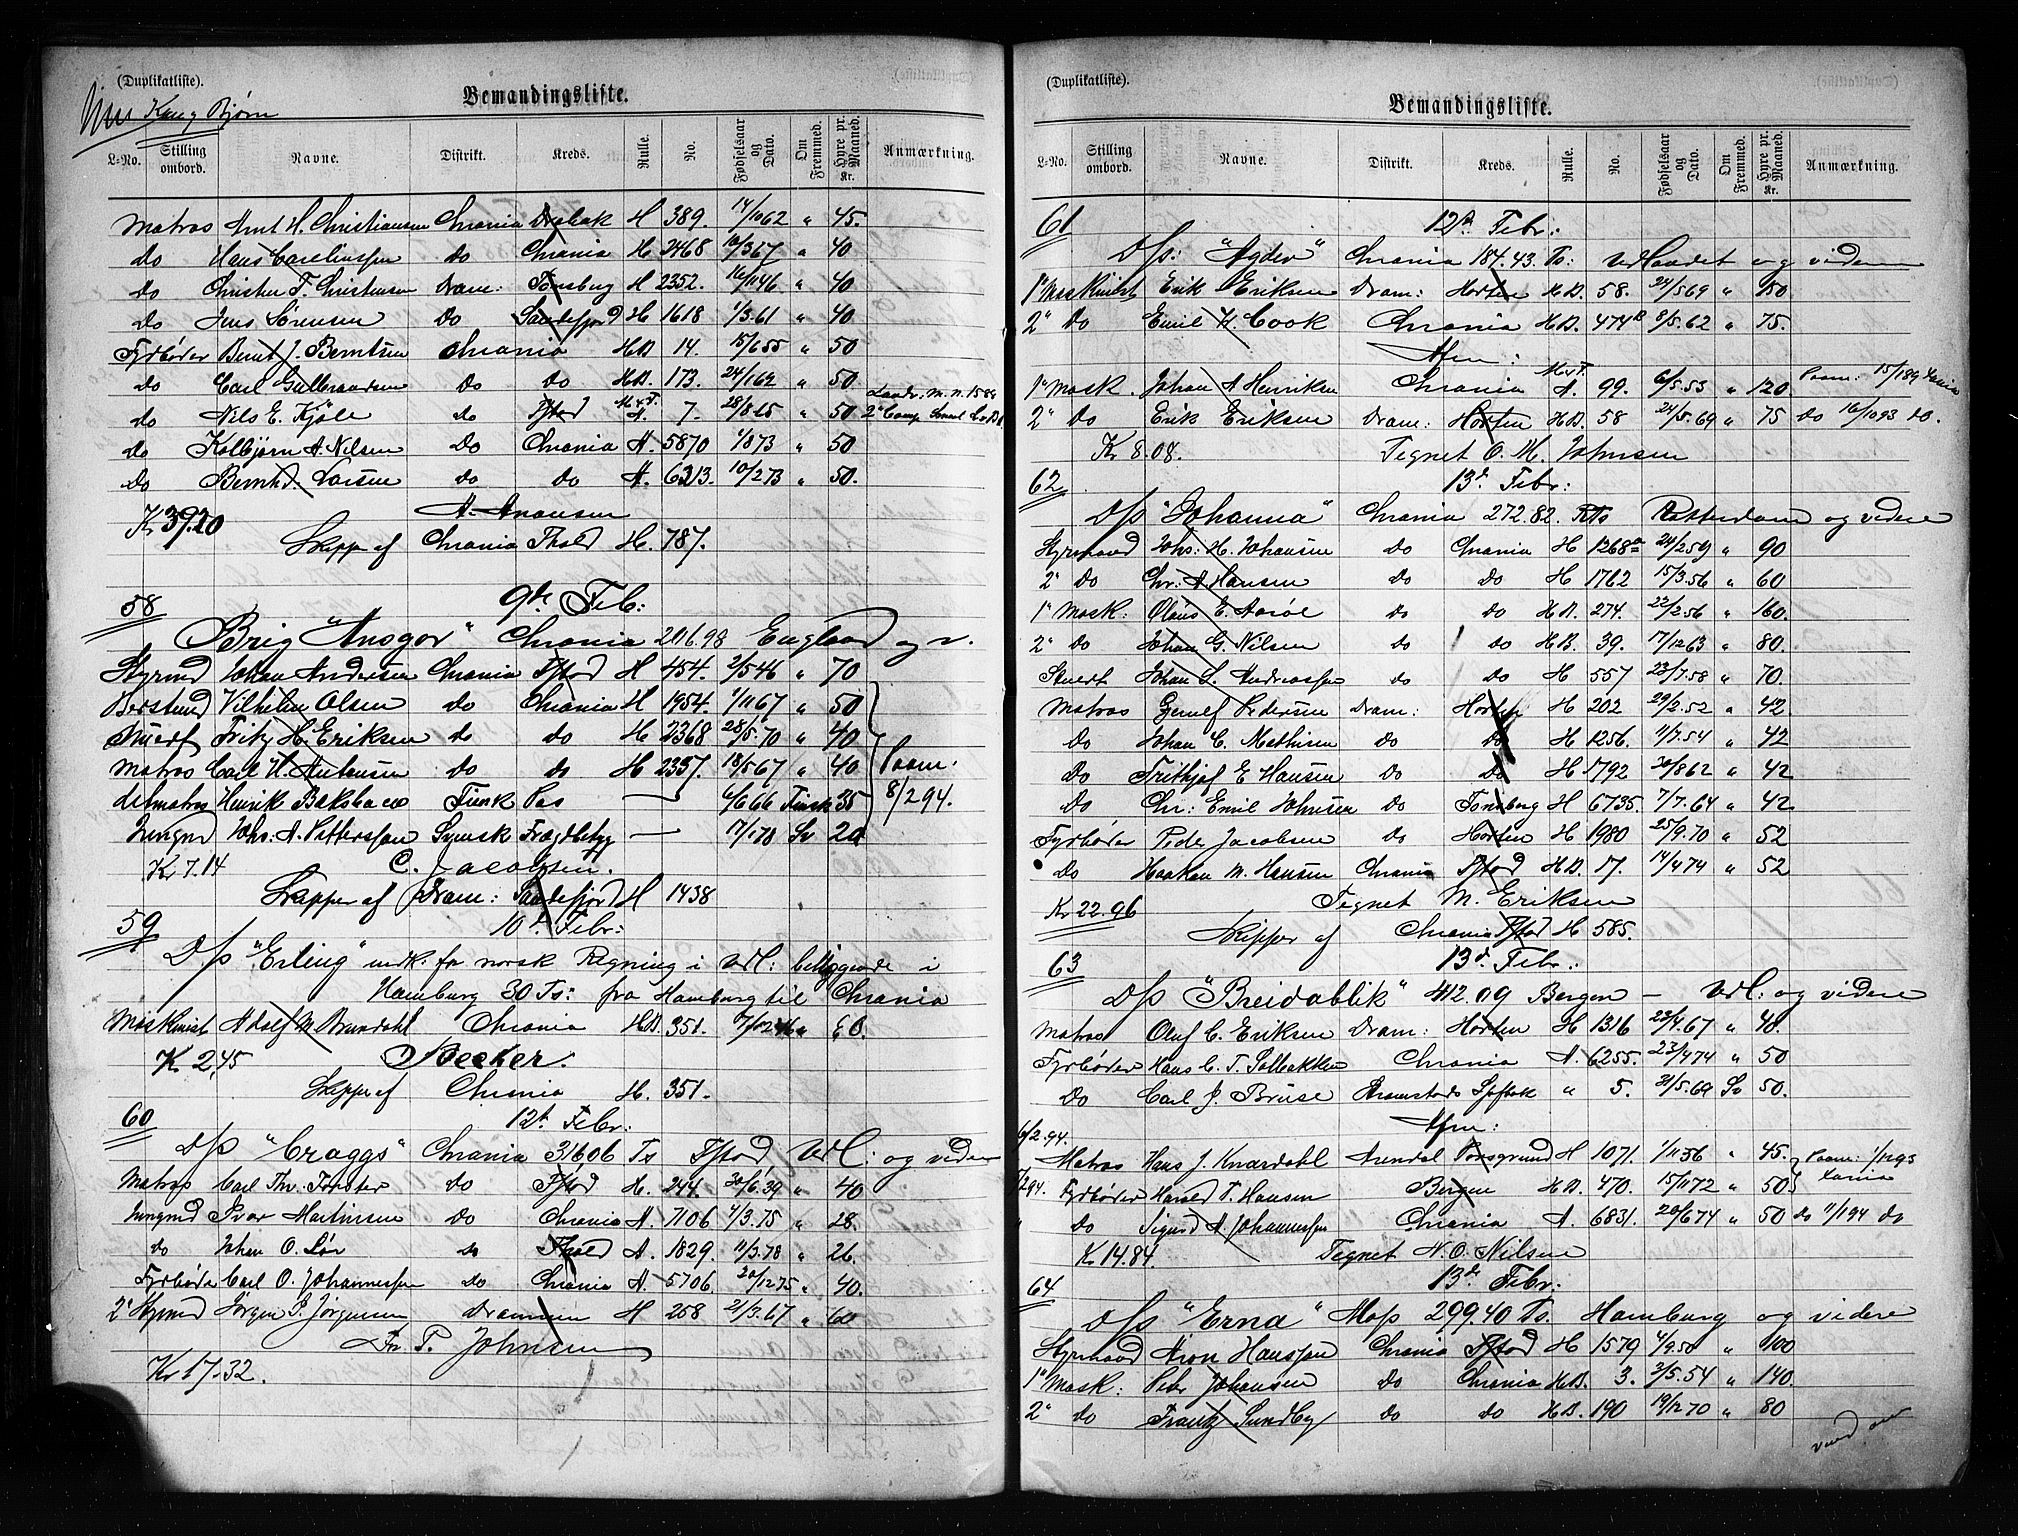 (Duplikatliste).
Kong Bjørn
Bemandingsliste.
L-No. Stilling ombord. Navne. Distrikt. Kreds. Rulle. No. Fødselsaar og Dato. Om Fremmed. Hyre pr. Maaned. Kr. Anmærkning.
Matros Arnt H. Christiansen Chrania Drøbak H 389. 14/10 62 " 45.
do Hans Carelinssen do Chrania H 2468 10/3 67 " 40
do Christen F. Christensen Dram: Tønsberg H 2352. 16/11 46 " 40
do Jens Sørensen Do Sandefjord H 1618 1/3.61 " 40
Fyrbøder Bernt J. Berntsen Chrania H.B 14. 15/6 55 " 50
do Carl Gulbrandsen Do Do H.B. 173. 24/1 62 " 50
do Nils E. Kjøle do Fstad M&T. A. 7. 28/8 25 " 50
do Kolbjørn A. Nilsen Do Chrania A. 5870 1/8 73 " 50
do Bernh. Larsen do do A. 6313. 10/2 73 " 50.
Kr 39.20 A. Aronsen
Skipper af Chrania Fhald H. 787.
58 9de Feb:
Brig "Ansgar" Chrania 206.98 England og v.
Styrmd Johan Andersen Chrania Fstad H 454. 2/5 46 " 70
Bestmd Vilhelm Olsen do Chrania H 1954. 1/11 67 " 50
Stuert Fritz H. Eriksen do do H 2368 28/5.70 " 40
Matros Carl H. Antonsen do do H 2357. 18/5 67 " 40 Paam:
Letmatros Henrik Baksbaca Finsk Pas — 6/6 66 Finsk 35 8/2 94.
Jungmd Johs. A. Pettersson Svensk Fragdbetyg — 17/1 78 Sv 20
Kr 7.14 C. Jacobsen.
Skipper af Dram: Sandefjord H 1438
59 10de Febr:
D/s "Erling" indk: for norsk Regning i Udl: beliggende i
Hamburg 30 Ts: fra Hamburg til Chrania
Maskinist Adolf M. Brundahl Chrania H.B. 351. " 60.
K 2,45 Becker.
Skipper af Chrania H. 351.
60 12te Febr:
D/s "Craggs" Chrania 316.06 Ts Fstad Udl: og videre
Matros Carl Th. Forster do Fstad H. 244. 30/6.39 " 40
Jungmd Ivar Martinsen Do Chrania A. 7106 4/3.75 " 28.
do Johan O. Lør do Fhald A. 1829. 11/3.78 " 26.
Fyrbøder Carl O. Johannessen do Chrania A. 5706. 20/12 75 " 40.
2" Styrmd Jørgen P. Jørgensen Drammen H 258 21/3.67 " 60
Fr. P. Johnsen
Kr 17.32.
(Duplikatliste).
Bemandingsliste.
L-No. Stilling ombord. Navne. Distrikt. Kreds. Rulle. No. Fødselsaar og Dato. Om Fremmed. Hyre pr. Maaned. Kr. Anmærkning.
61 12te Febr:
D/s: "Agder" Chrania 184.43. Ts: Udlandet og videre
1" Maskinist Erik Eriksen Dram: Horten H.B. 58. 24/5 69 " 150
2" Do Emil H. Cook Chrania H.B. 474 B 8/5.62 " 75.
Afm:
1" Mask. Johan A. Henriksen Chrania M&T. A. 99. 6/5.53 " 120 Paam: 15/1 89
2" Do Erik Eriksen Dram: Horten H.B. 58 24/5.69 " 75 Do 16/10 93 Do.
Kr 8.08. Tegnet O. M. Johnsen
62 13de Febr:
D/s "Johanna" Chrania 272.82. RTs Rotterdam og videre
Styrmand Johs: H. Johansen Do Chrania H 1268 a 24/2 59 " 90
2" Do Chr: A. Hansen Do Do H 1762 15/3.56 " 60
1" Mask: Olaus E. Aarøe Do Do H.B. 274. 22/2.56 " 160.
2" Do Johan G. Nilsen do do H.B. 39. 17/12 63 " 80.
Stuert Johan L. Andreassen do do H 557 23/7.58 " 70.
Matros Gjeruf Pedersen Dram: Horten H 202 29/2.52 " 42
Do Johan C. Mathisen Do do H 1256. 11/7.54 " 42
Do Frithjof E Hansen Do do H 1792 30/8 62 " 42
Do Chr: Emil Johnsen Do Tønsberg H 6735. 7/7.64 " 42
Fyrbøder Peder Jacobsen do Horten H 1980 25/9.70 " 52
Do Haakon M. Hansen Chrania Fstad H.B. 17. 14/4 74 " 52
Kr 22.96 Tegnet M. Eriksen
Skipper af Chrania Fstad H 585.
63 13de Febr:
D/s "Breidablik" 412.09 Bergen — Udl: og videre
Matros Oluf C. Eriksen Dram: Horten H 1316 23/4.67 " 40.
Fyrbøder Hans C. T. Solbakken Chrania A. 6255. 23/4 74 " 50
Do Carl J. Bruse Sjøfbok " 5. 31/5.69 Sv 50.
6/2.94. Afm:
Matros Hans J. Knardahl Arendal Porsgrund H 1071. 1/11 56 " 45. Paam: 1/12 93
7/2 94. Fyrbøder Harald T. Hansen Bergen H.B. 470. 15/11 72 " 50
" do Sigurd A. Johannessen Chrania A. 6831. 20/6 74 " 50 Do 11/1 94 do
Kr 14.84. Tegnet N. O. Nilsen
64 13de Febr:
D/s "Erna" Moss 299.40 Ts. Hamburg og videre
Styrmand Aron Hanssen Chrania Fstad H 1579 4/9.50 " 100
1" Mask: Peter Johansen Do Chrania H.B. 3. 3/5.54 " 140.
2" do Frantz Sundby do do H.B. 190 19/12 70 " 80
vend om